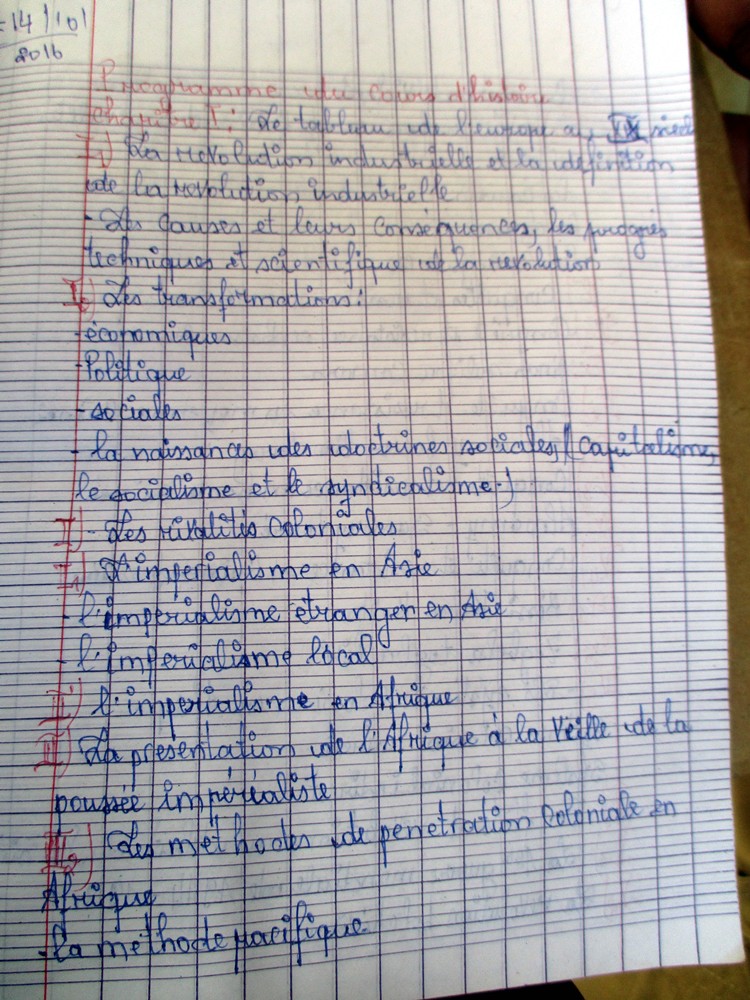 14/10/
2016
Programme du cours d'histoire
Chapitre I: Le tableau de l'europe au XIX siècl
I1) La revolution industrielle et la definition
de la revolution industrielle
- Les causes et leurs conséquences, les progrès
techniques et scientifique de la revolution
I2) Les transformations:
- économiques
- Politique
- sociales
- la naissances des doctrines sociales (capitalisme,
le socialisme et le syndicalisme.)
II)- Les rivalités coloniales
I1) L'imperialisme en Asie
- l'imperialisme étranger en Asie
- l'imperialisme local
II) l'imperialisme en Afrique
II) La presentation de l'Afrique à la veille de la
poussée impérialiste
III2) Les méthodes de penetration coloniale en
Afrique
- la méthode pacifique